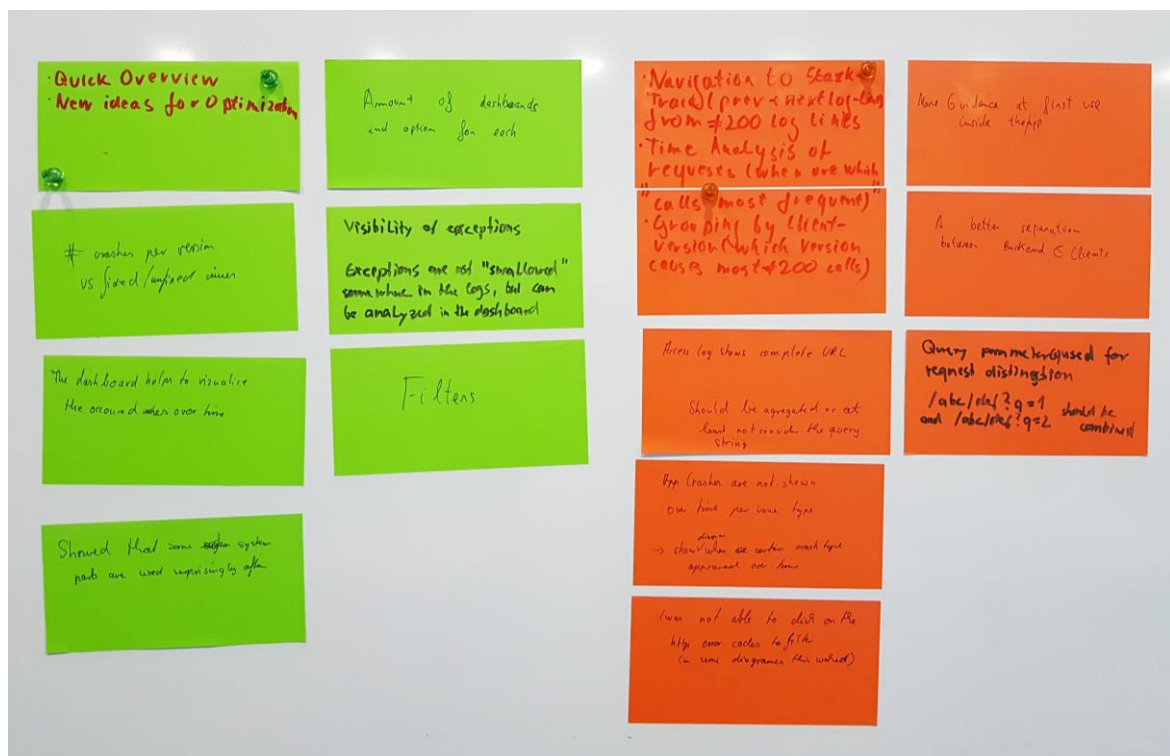 · Quick Overview
· New ideas for Optimization
# crashes per version
vs fixed/unfixed issues
The dashboard helps to vizualise
the occoured over time
Showed that some system
parts are used surprisingly often
Amount of dashboards
and option for each
Visibility of exceptions
Exceptions are not "swallowed"
somewhere in the logs, but can
be analyzed in the dashboard
Filters
· Navigation to Stack-
Trace (prev + next log-lines
from ≠200 log lines
· Time Analysis of
requests (when are which
"calls most frequent)"
· Grouping by Client-
version (which version
causes most ≠200 calls)
Access log shows complete URL
Should be agregated or at
least not consider the query
string
App Crashes are not shown
over time per issue type
→ show when certain crash type
appeared over time
I was not able to click on the
http error codes to filter
(in some diagrames this worked)
More Guidance at first use
inside the App
A better separation
between Backend & Clients
Query parameters used for
request distinction
/abc/def?q=1
and /abc/def?q=2 should be
combined